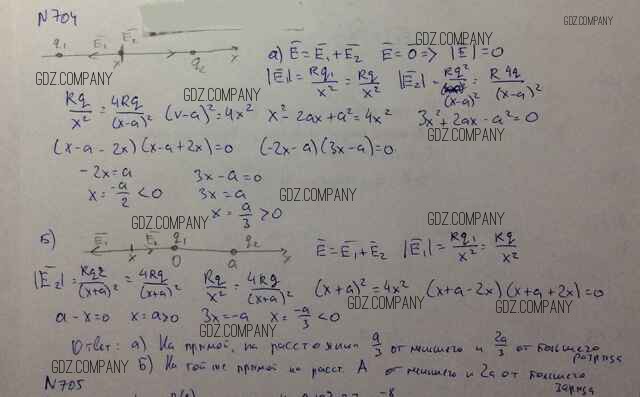 N704
GDZ.COMPANY
q₁ E̅₁ E̅₂ x q₂ x
а) E̅ = E̅₁ + E̅₂ E̅ = 0̅ => |E̅| = 0
GDZ.COMPANY
|E̅₁| = kq₁/x² = kq/x² |E̅₂| = kq²/(x-a)² = k4q/(x-a)²
GDZ.COMPANY GDZ.COMPANY
kq/x² = 4kq/(x-a)² (x-a)² = 4x² x² - 2ax + a² = 4x² 3x² + 2ax - a² = 0
GDZ.COMPANY
(x-a-2x)(x-a+2x) = 0 (-2x-a)(3x-a) = 0
-2x = a 3x - a = 0
x = -a/2 < 0 3x = a
GDZ.COMPANY
x = a/3 > 0
GDZ.COMPANY GDZ.COMPANY
Б) E̅₁ x E̅₂ q₁ 0 q₂ a x
E̅ = E̅₁ + E̅₂ |E̅₁| = kq₁/x² = kq/x²
GDZ.COMPANY
|E̅₂| = kq2/(x+a)² = 4kq/(x+a)² kq/x² = 4kq/(x+a)² (x+a)² = 4x² (x+a-2x)(x+a+2x) = 0
GDZ.COMPANY
a-x=0 x=a>0 3x=-a x = -a/3 < 0
GDZ.COMPANY
Ответ: а) На прямой, на расстоянии a/3 от меньшего и 2a/3 от большего
GDZ.COMPANY
заряда
GDZ.COMPANY
Б) На той же прямой на расст. А от меньшего и 2a от большего
заряда
N705
GDZ.COMPANY